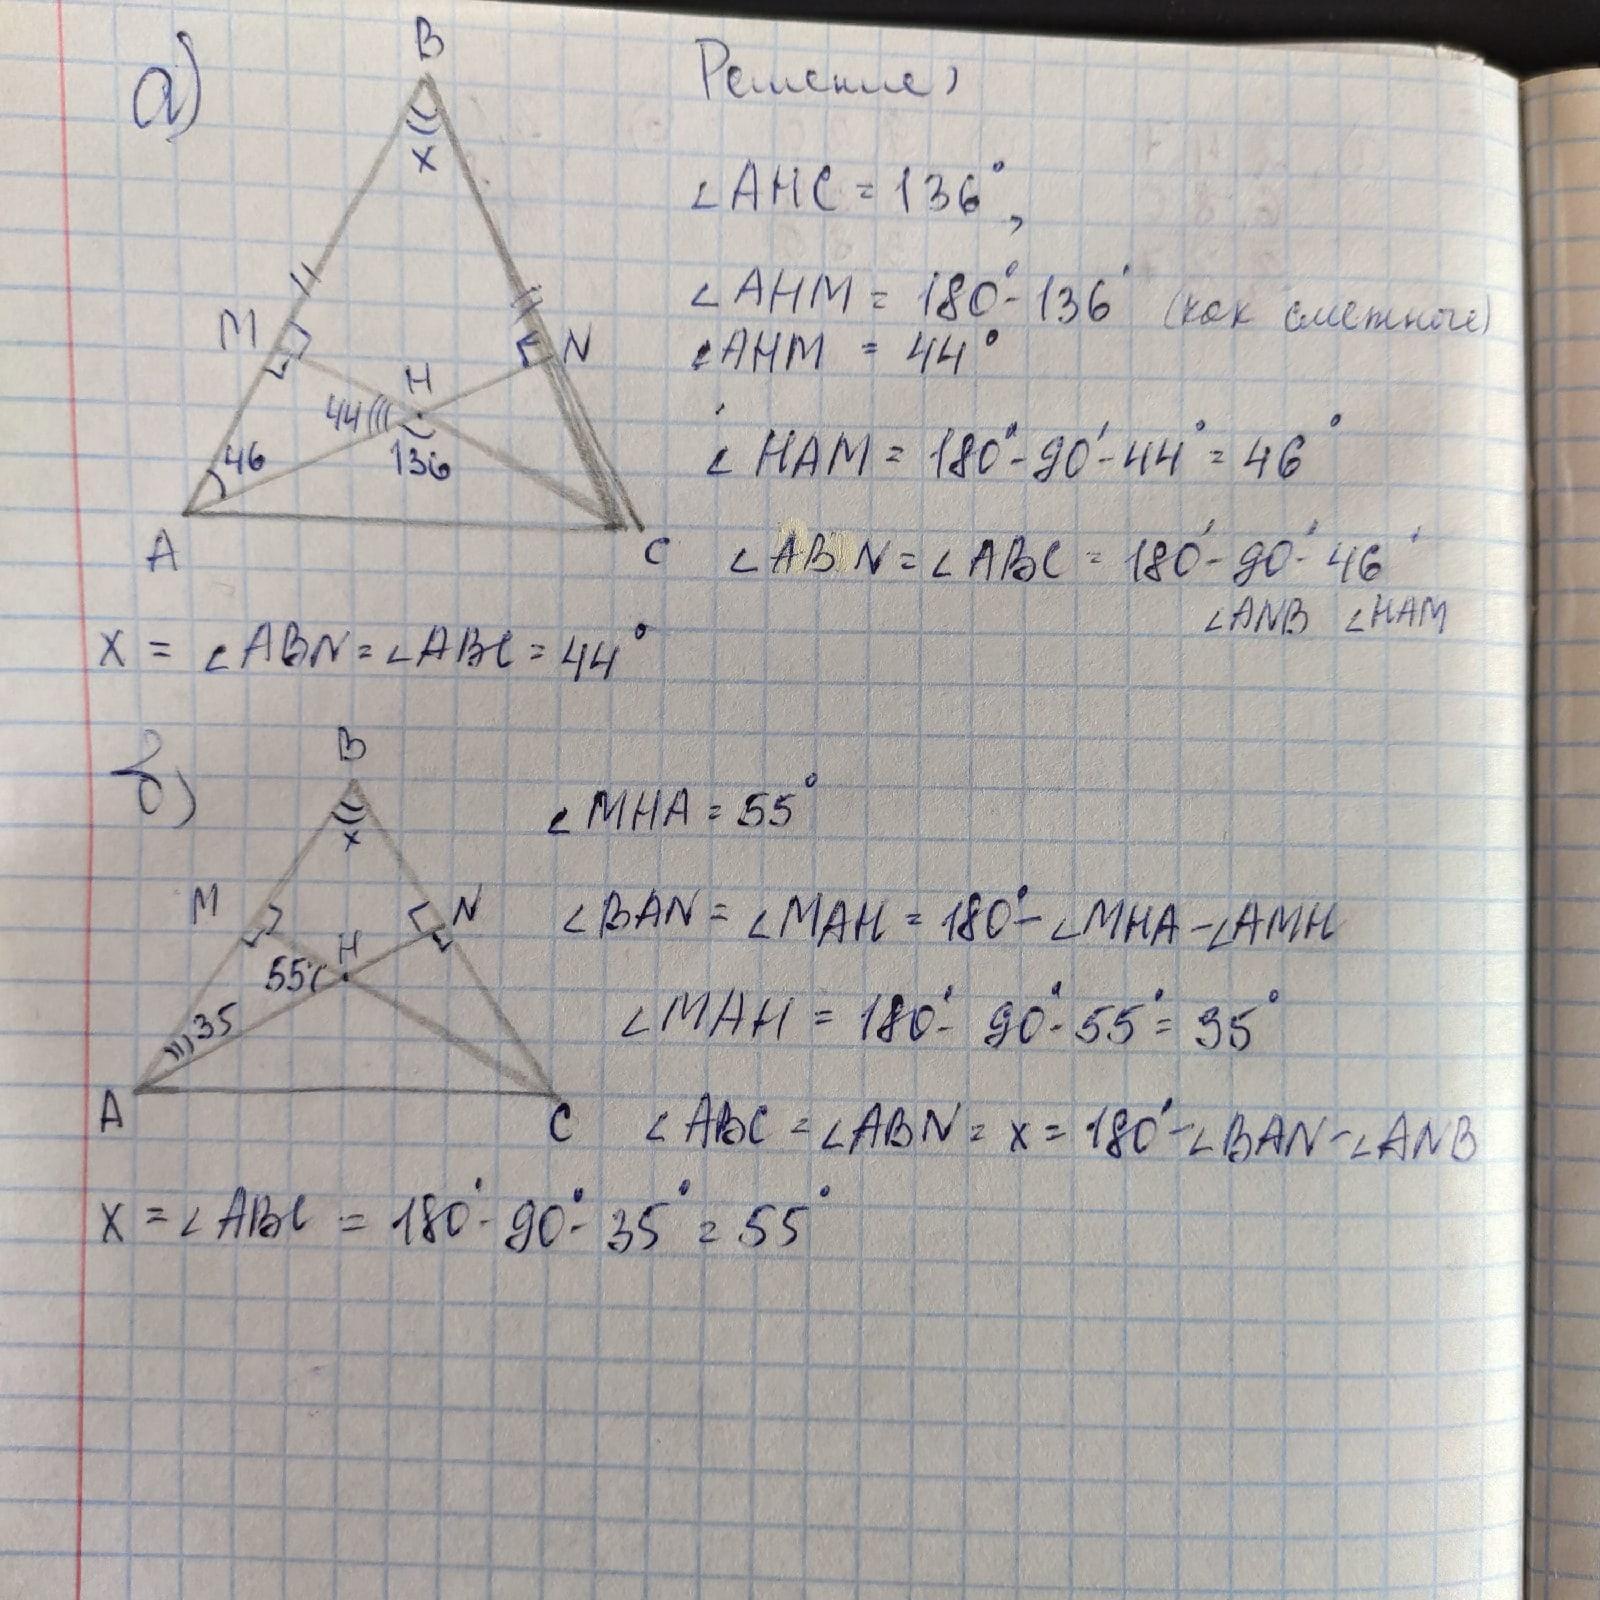 а)
B
x
M
N
H
44
136
46
A
C
Решение,
∠AHC = 136°,
∠AHM = 180° - 136° (как смежные)
∠AHM = 44°
∠HAM = 180° - 90° - 44° = 46°
∠ABN = ∠ABC = 180° - 90° - 46°
∠ANB ∠HAM
x = ∠ABN = ∠ABC = 44°
б)
B
x
M
N
H
55
35
A
C
∠MHA = 55°
∠BAN = ∠MAH = 180° - ∠MHA - ∠AMH
∠MAH = 180° - 90° - 55° = 35°
∠ABC = ∠ABN = x = 180° - ∠BAN - ∠ANB
x = ∠ABC = 180° - 90° - 35° = 55°